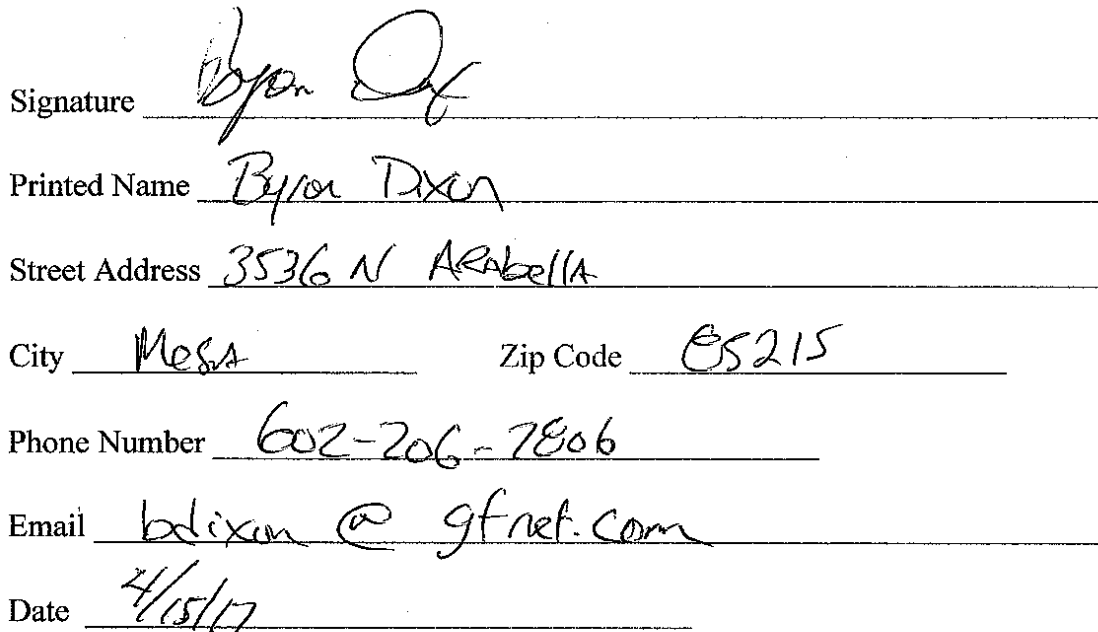 Signature Byron Dix
Printed Name Byron Dixon
Street Address 3536 N ARAbellA
City MesA Zip Code 85215
Phone Number 602-206-7806
Email bdixon @ gfnet.com
Date 4/15/17